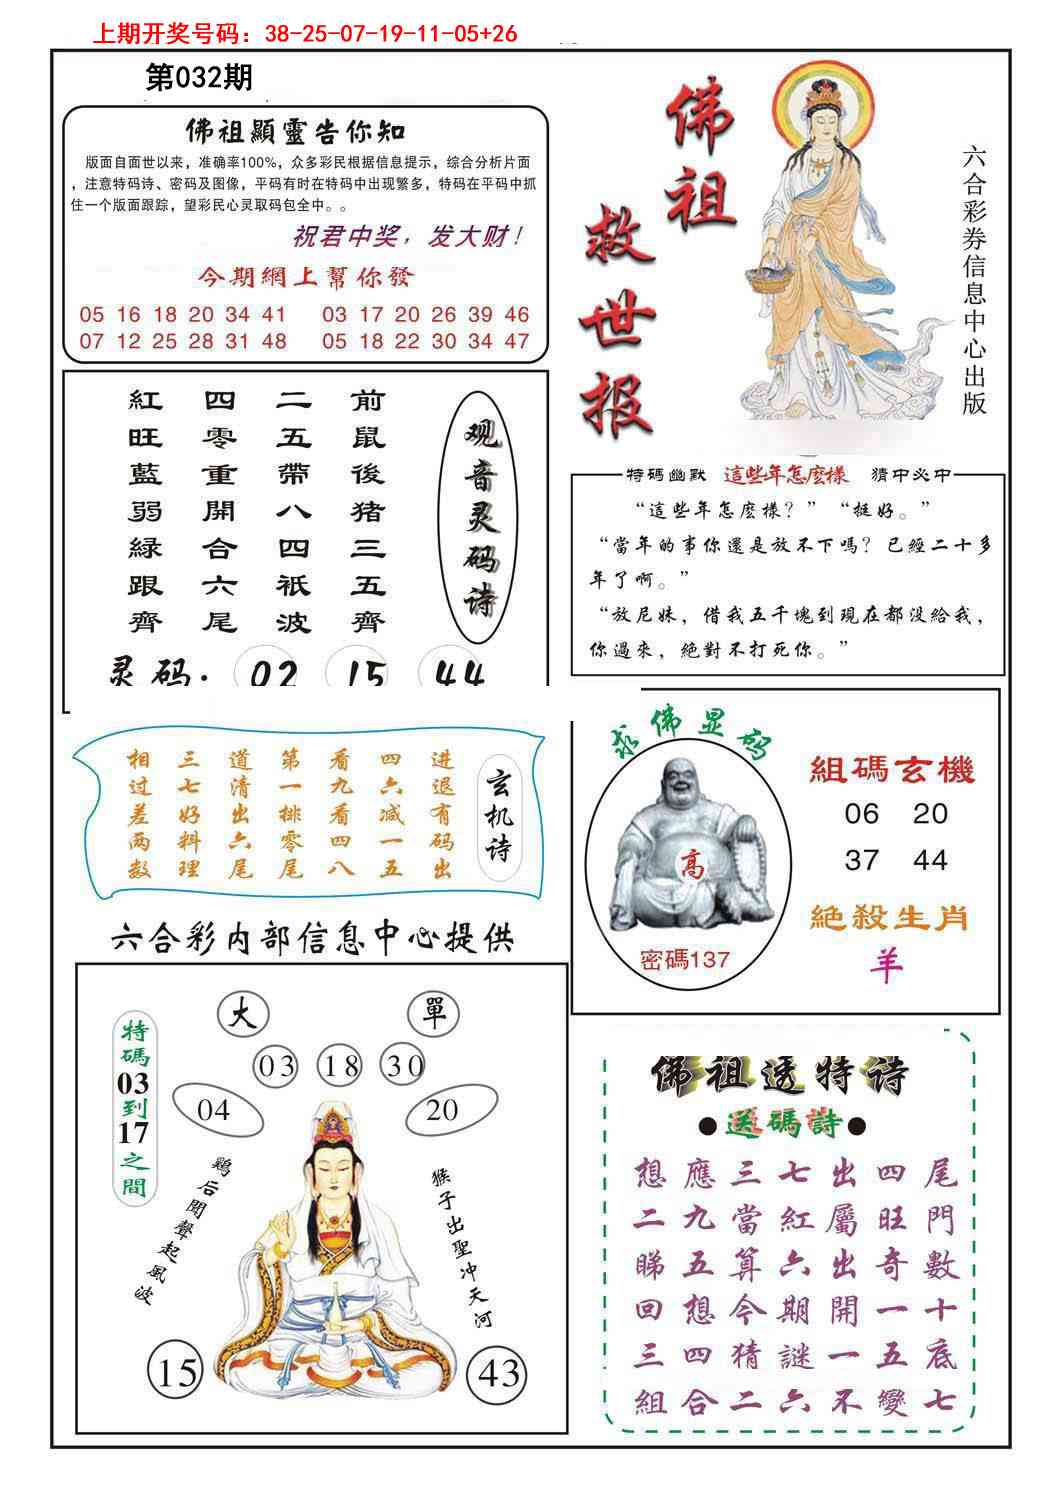 上期开奖号码：38-25-07-19-11-05+26
第032期
佛祖顯靈告你知
版面自面世以来，准确率100%，众多彩民根据信息提示，综合分析片面
，注意特码诗、密码及图像，平码有时在特码中出现繁多，特码在平码中抓
住一个版面跟踪，望彩民心灵取码包全中。。
祝君中奖，发大财！
今期網上幫你發
05 16 18 20 34 41 03 17 20 26 39 46
07 12 25 28 31 48 05 18 22 30 34 47
佛祖
救世报
六合彩券信息中心出版
观音灵码诗
前鼠後猪三五齊
二五帶八四衹波
四零重開合六尾
紅旺藍弱緑跟齊
灵码: 02 15 44
特码幽默 這些年怎麽樣 猜中必中
“這些年怎麽樣？”“挺好。”
“當年的事你還是放不下嗎？已經二十多
年了啊。”
“放尼妹，借我五千塊到現在都没給我，
你過來，絶對不打死你。”
玄机诗
进退有码出
四六减一五
看九看四八
第一排零尾
道清出六尾
三七好料理
相过差两数
求佛显码
高
密碼137
組碼玄機
06 20
37 44
絶殺生肖
羊
六合彩内部信息中心提供
特碼03到17之間
大 單
03 18 30
04 20
鷄后聞聲起風波
猴子出聖冲天河
15 43
佛祖透特诗
●送碼詩●
想應三七出四尾
二九當紅屬旺門
睇五算六出奇數
回想今期開一十
三四猜謎一五底
組合二六不變七